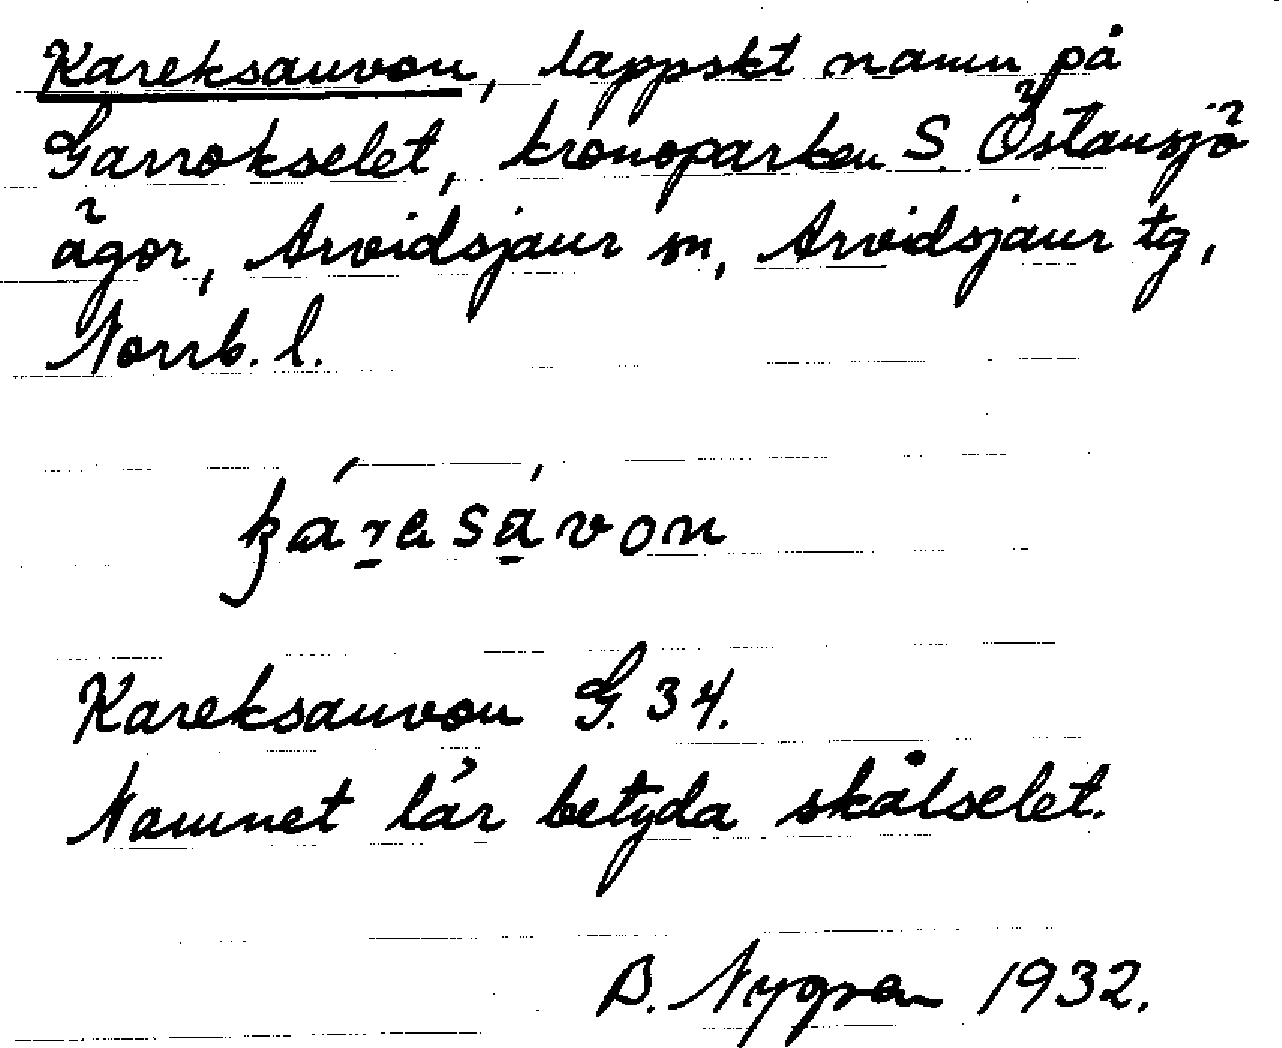 Kareksauvon, lappskt namn på
Garrokselet, kronoparken S. Östansjö
ägor, Arvidsjaur sn, Arvidsjaur tg,
Norrb. l.
ká̀r̲esá̲von
Kareksauvon G. 34.
Namnet lär betyda skålselet.
B. Nygren 1932.